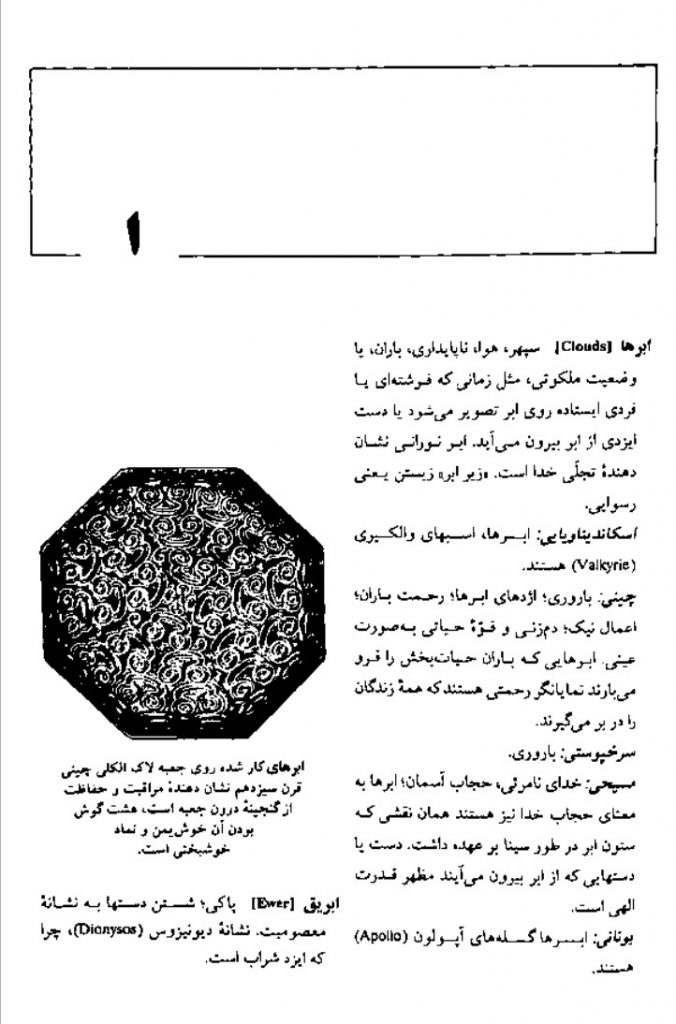 ا
ابرها [Clouds]. سپهر، هوا، ناپایداری، باران، یا
وضعیت ملکوتی، مثل زمانی که فرشته‌ای یا
فردی ایستاده روی ابر تصویر می‌شود یا دست
ایزدی از ابر بیرون می‌آید. ابر نورانی نشان
دهندۀ تجلّی خدا است. «زیر ابر» زیستن یعنی
رسوایی.
اسکاندیناویایی: ابرها، اسبهای والکیری
(Valkyrie) هستند.
چینی: باروری؛ اژدهای ابرها؛ رحمت باران؛
اعمال نیک؛ دم‌زنی و قوّۀ حیاتی به‌صورت
عینی. ابرهایی که باران حیات‌بخش را فرو
می‌بارند نمایانگر رحمتی هستند که همۀ زندگان
را در بر می‌گیرند.
سرخپوستی: باروری.
مسیحی: خدای نامرئی، حجاب آسمان؛ ابرها به
معنای حجاب خدا نیز هستند همان نقشی که
ستون ابر در طور سینا بر عهده داشت. دست یا
دستهایی که از ابر بیرون می‌آیند مظهر قدرت
الهی است.
یونانی: ابرها گله‌های آپولون (Apollo)
هستند.
ابرهای کار شده روی جعبه لاک الکلی چینی
قرن سیزدهم نشان دهندۀ مراقبت و حفاظت
از گنجینۀ درون جعبه است، هشت گوش
بودن آن خوش‌یمن و نماد
خوشبختی است.
ابریق [Ewer] پاکی؛ شستن دستها به نشانۀ
معصومیت. نشانۀ دیونیزوس (Dionysos)، چرا
که ایزد شراب است.